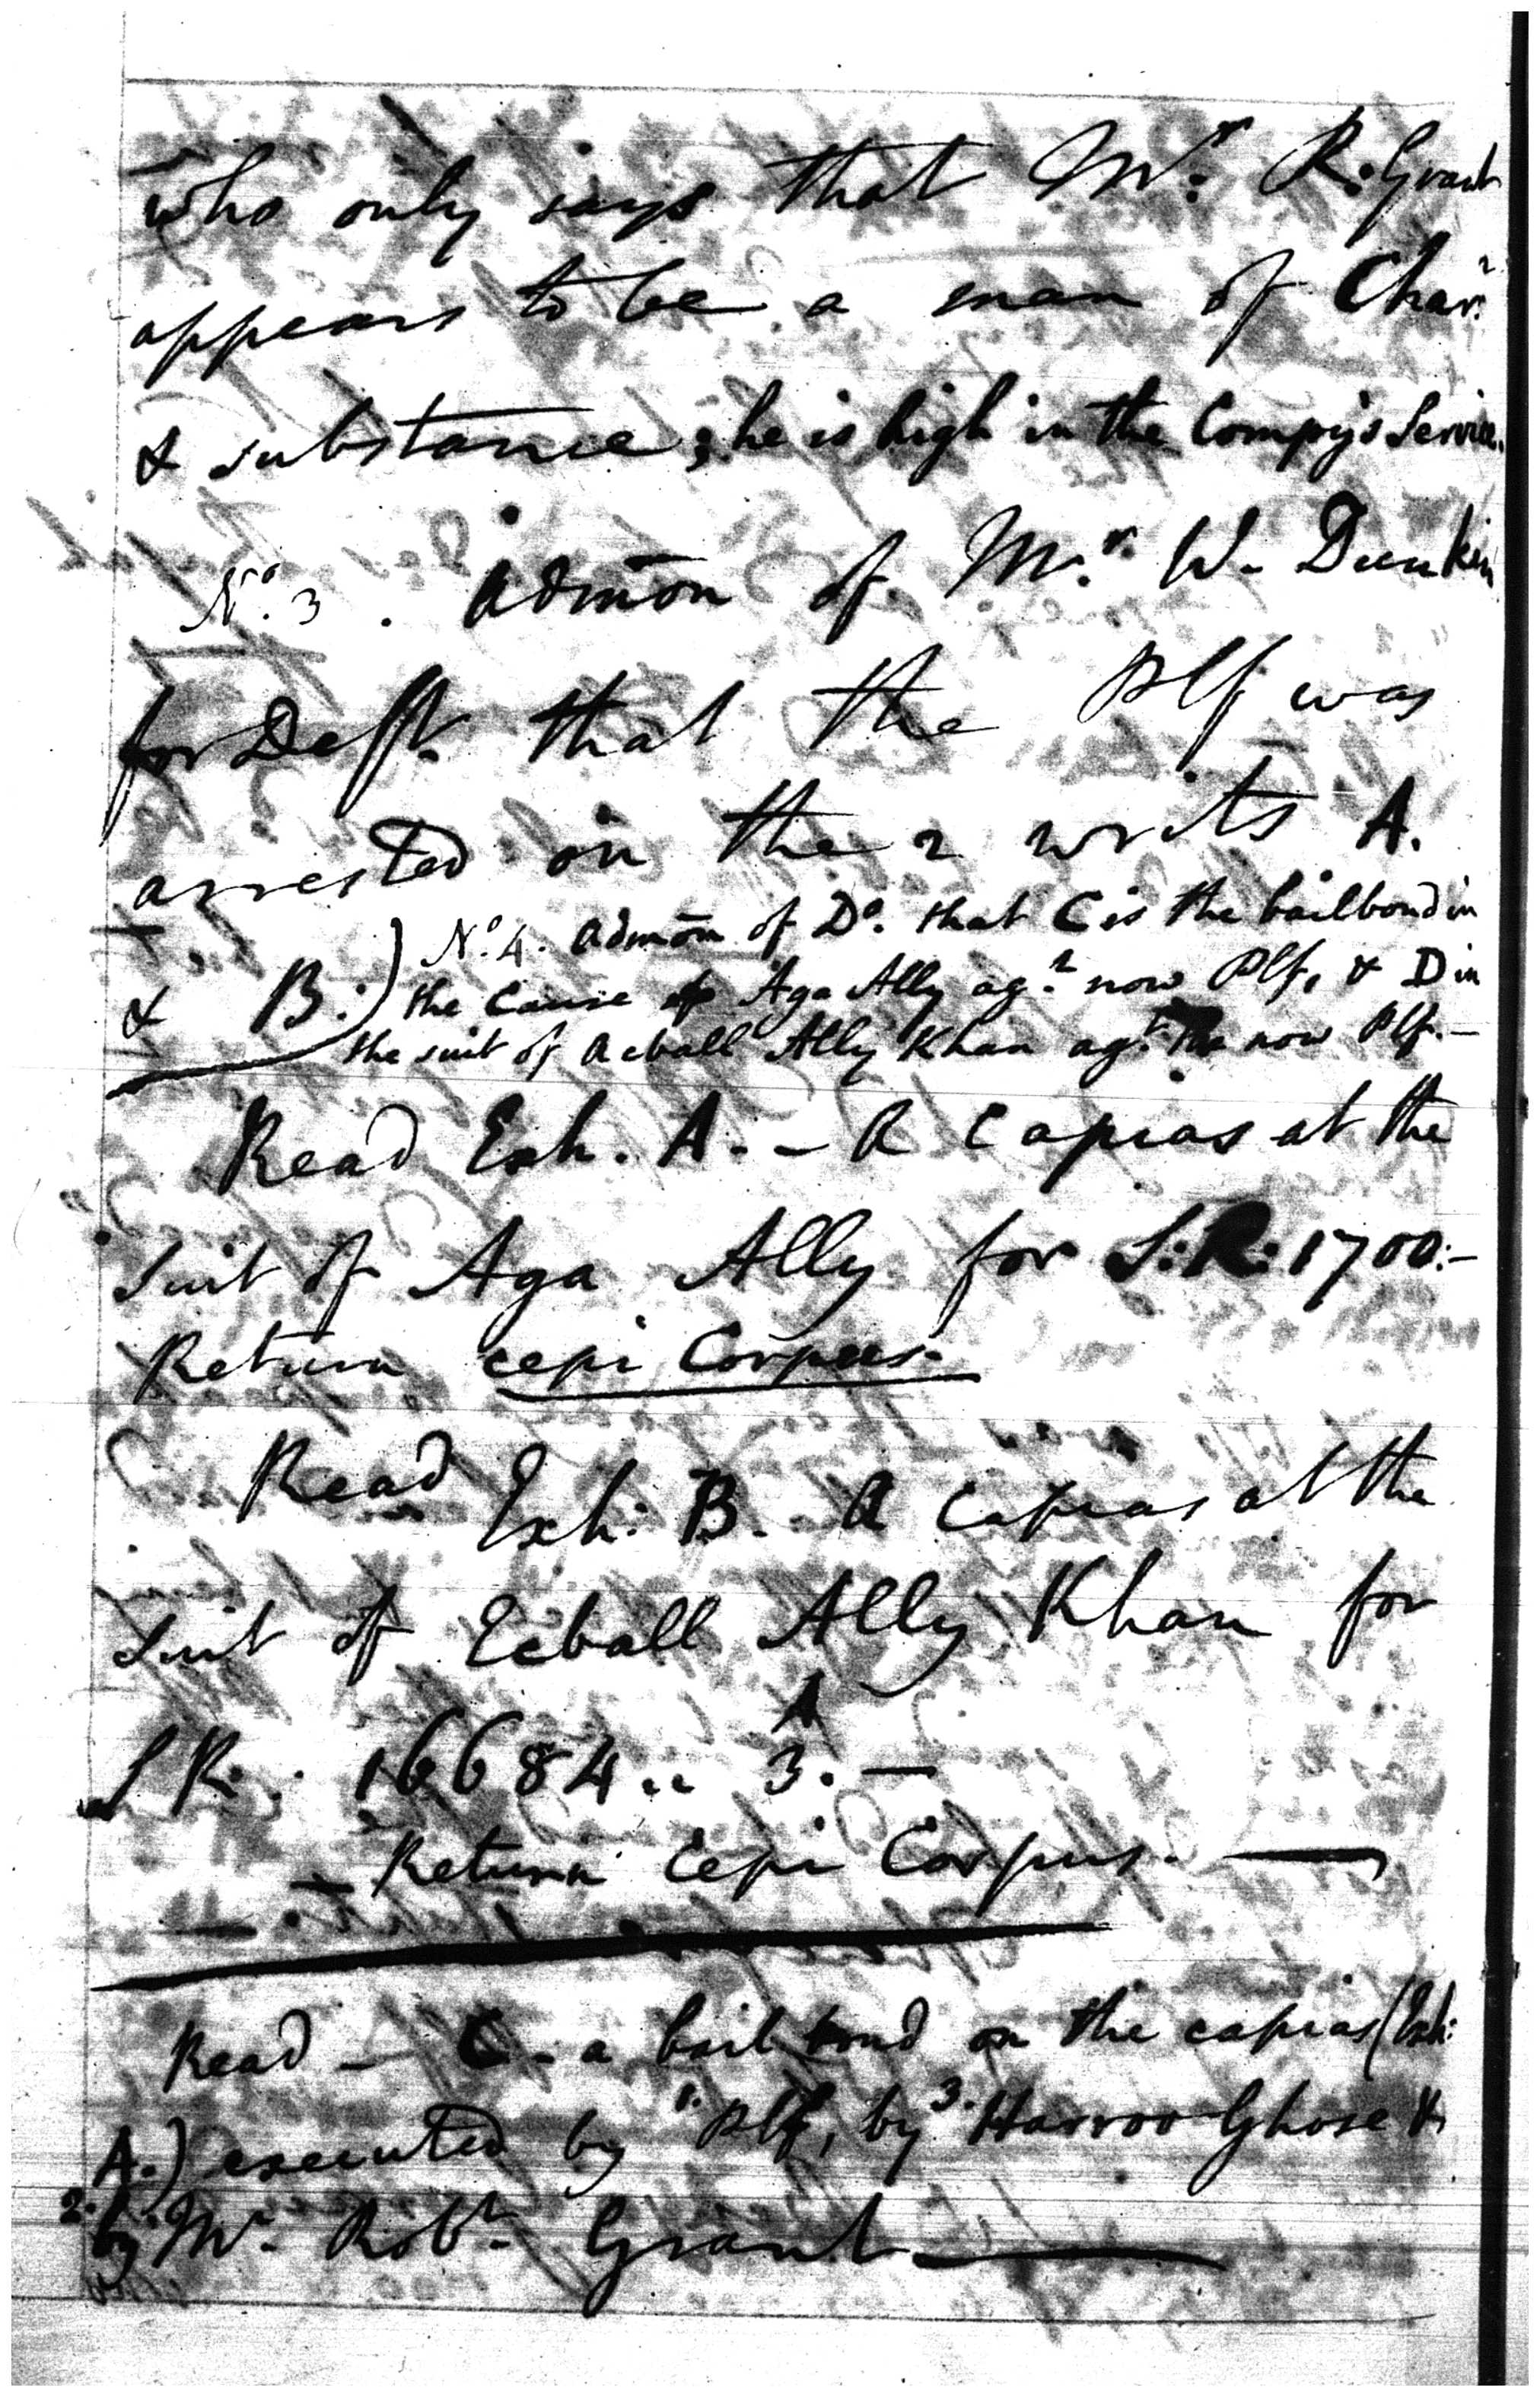 who only says that Mr. R. Grant
appears to be a man of Charr.
& substance; he is high in the Compy's Service.
No. 3. Admōn of Mr. W. Dunkin
for Deft. that the Plf was
arrested on the 2 writs A.
& B.) No. 4. Admōn of Do. that C is the bailbond in
the Cause of Aga Ally agt. now Plf, & D in
the suit of Acball Ally Khan agt. the now Plf. —
Read Exh. A. — A Capias at the
suit of Aga Ally for S:R: 1700:—
Return cepi Corpus.
Read Exh: B. A Capias at the
suit of Ecball Ally Khan for
A
S R. 16684.. 3. —
— Return Cepi Corpus. —
Read — C — a bail bond on the capias (Exh:
A.) executed by 1. Plf, by 3. Harroo Ghose &
2. by Mr. Robt. Grant —